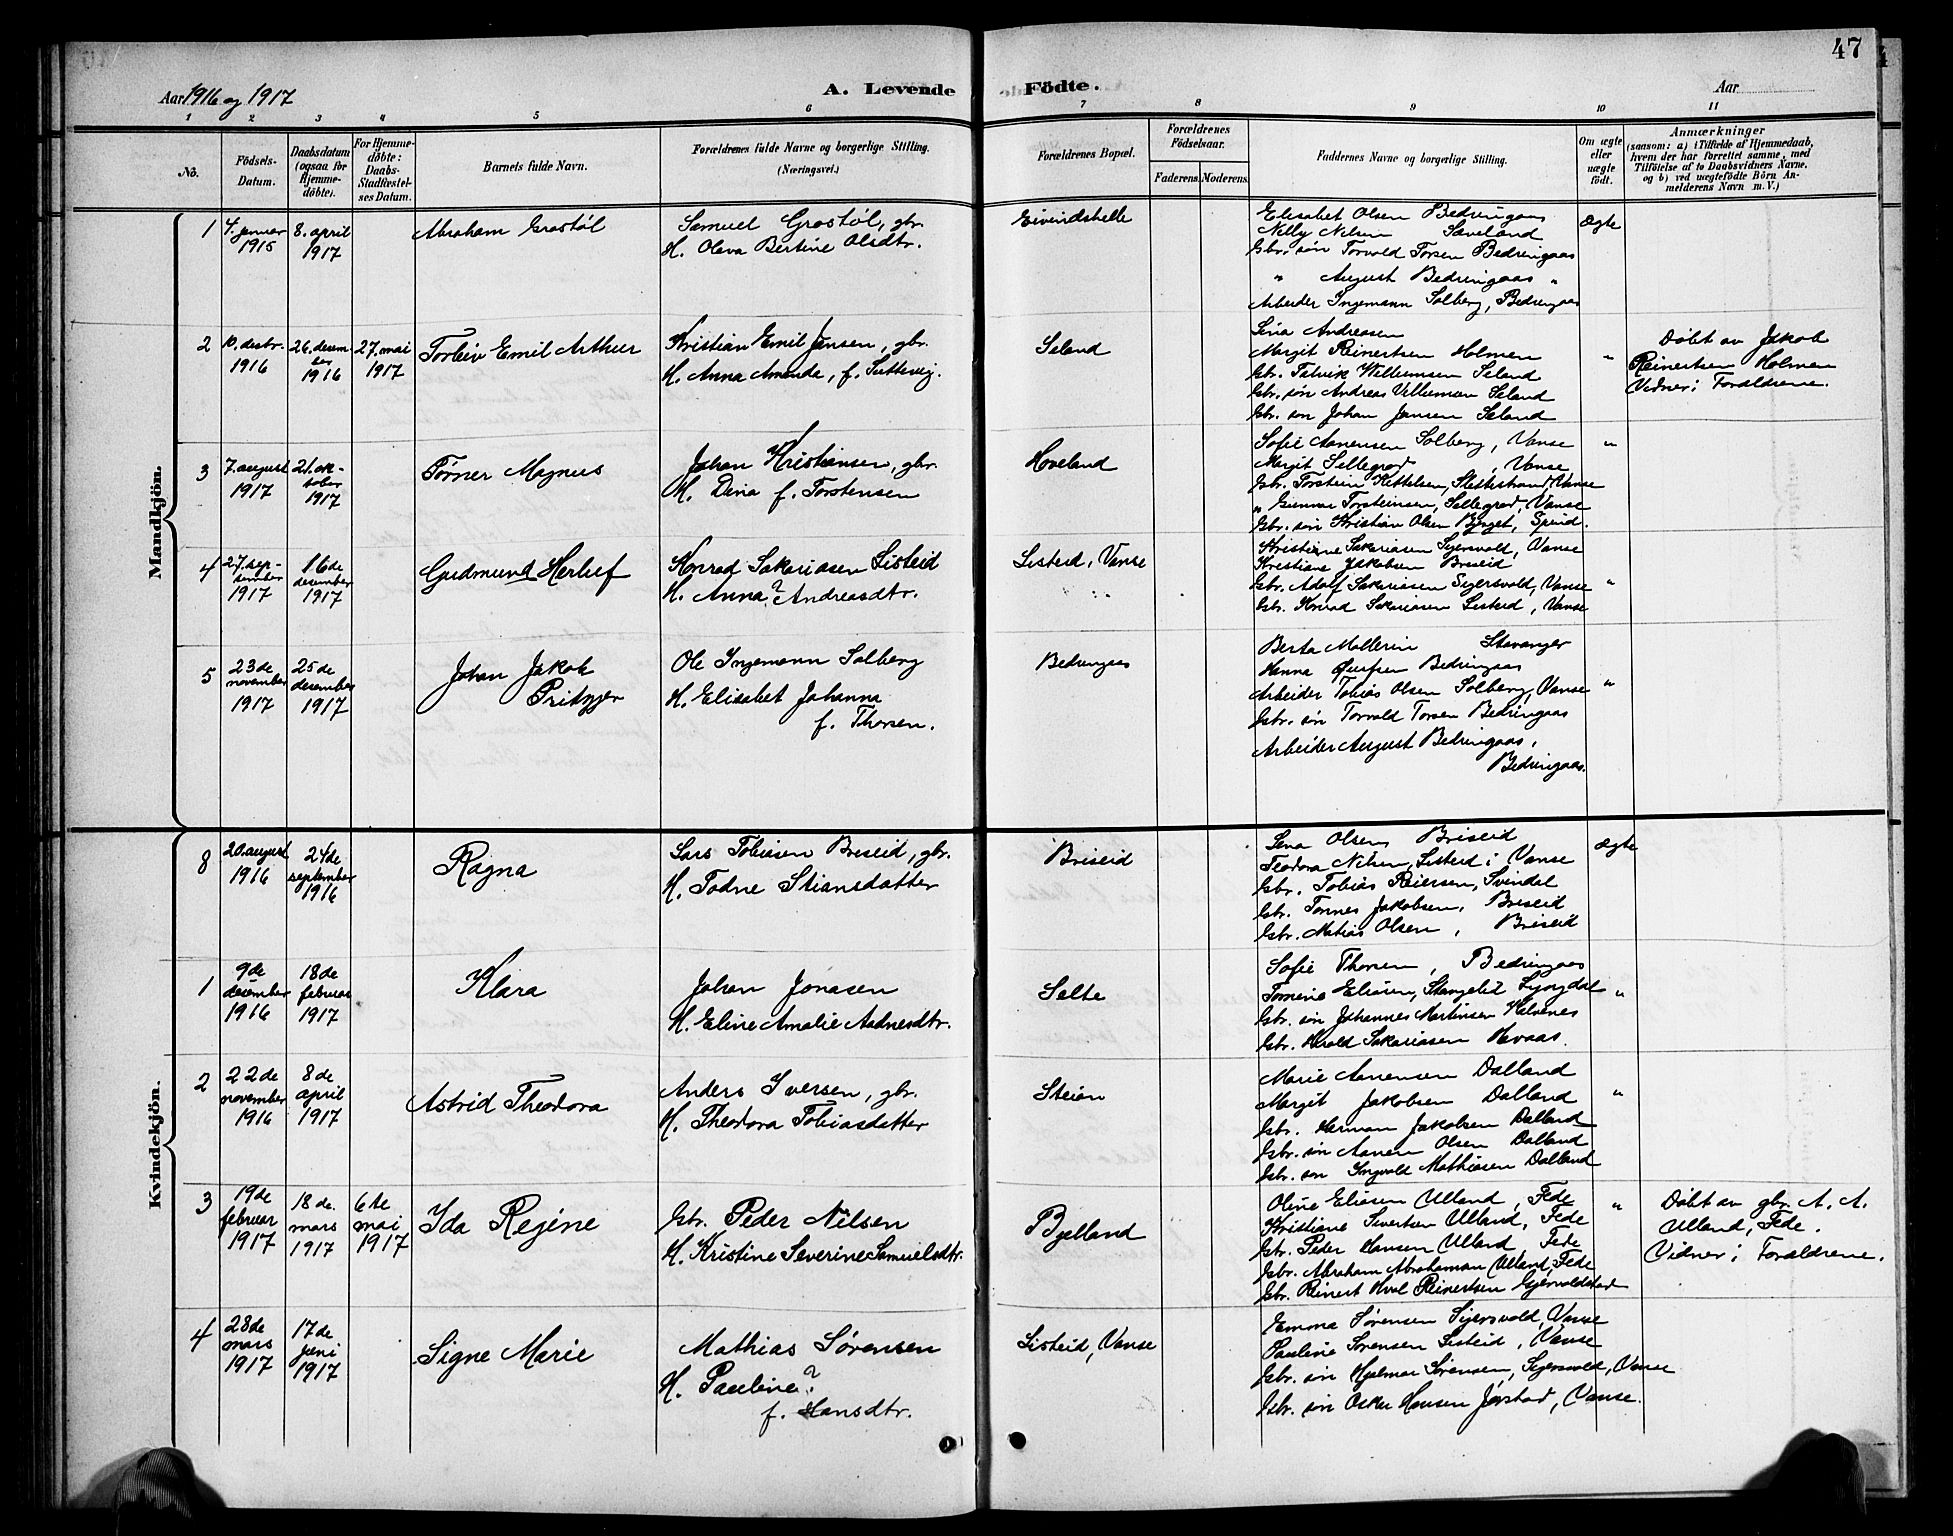 47
Aar 1916 og 1917
A. Levende Födte.
Aar
1 2 3 4 5 6 7 8 9 10 11
No.
Födsels-Datum.
Daabsdatum (ogsaa for Hjemme-döbte).
For Hjemme-döbte: Daabs-Stadfæstel-ses Datum.
Barnets fulde Navn.
Forældrenes fulde Navne og borgerlige Stilling. (Næringsvei.)
Forældrenes Bopæl.
Forældrenes Födselsaar.
Faderens. Moderens.
Faddernes Navne og borgerlige Stilling.
Om ægte eller uægte födt.
Anmærkninger (saasom: a) i Tilfælde af Hjemmedaab, hvem der har forrettet samme, med Tilföielse af to Daabsvidners Navne, og b) ved uægtefödte Börn An-melderens Navn m. V.)
Mandkjön.
1
4. januar 1915
8. april 1917
Abraham Grostøl
Samuel Grostøl, gbr.
H. Oleva Bertine Olsdtr.
Eivindshelle
Elisabet Olsen Bedringaas
Nelly Nilsen Sæveland
Gbr. søn Torvald Torsen Bedringaas
" August Bedringaas "
Arbeider Ingemann Solberg, Bedringaas
Ægte
2
10. desbr. 1916
26. desember 1916
27. mai 1917
Torleiv Emil Arthur
Kristian Emil Jensen, gbr.
H. Anna Amanda, f.
Seland
Lina Andreasen
Margit Reinertsen Holmen
Gbr. Willumsen Seland
Gbr. søn Andreas Villumsen Seland
Gbr. søn Johan Jensen Seland
"
Døbt av Jakob
Reinertsen Holmen
Vidner: Forældrene.
3
7. august 1917
21. oktober 1917
Tørner Magnus
Johan Kristiansen, gbr.
H. Dina f. Torstensen
Hoveland
Sofie Aanensen Solberg, Vanse
Margit Sellegrod, Vanse
Gbr. Torstein Kittelsen, Slettestrand, Vanse
" Gunnar Torsteinsen, Sellegrod, Vanse
Gbr. søn Kristian Olsen Bjerget, Spind.
"
4
27. september 1917
16de desember 1917
Gudmund Herluf
Konrad Sakariasen Listeid
H. Anna? Andreasdtr.
Listeid, Vanse
Kristine Sakariasen Sigersvold, Vanse
Kristiane Jakobsen Briseid
Gbr. Adolf Sakariasen Sigersvold, Vanse
Gbr. Konrad Sakariasen Listeid, Vanse
"
5
23de november 1917
25de desember 1917
Johan Jakob
Pritzger
Ole Ingemann Solberg
H. Elisabet Johanna
f. Thorsen.
Bedringaas
Berta Mollerin Stavanger
Hanna Bedringaas
Arbeider Tobias Olsen Solberg, Vanse
Gbr. søn Torvald Torsen Bedringaas
Arbeider August Bedringaas,
Bedringaas.
"
Kvindekjön.
8
20. august 1916
24de september 1916
Ragna
Lars Tobiasen Briseid, gbr.
H. Todne Stiansdatter
Briseid
Lina Olsen Briseid
Teodora Nilsen, Listeid i Vanse
Gbr. Tobias Reiersen, Svindal
Gbr. Tønnes Jakobsen, Briseid
Gbr. Matias Olsen, Briseid
Ægte
1
9de desember 1916
18de februar 1917
Klara
Johan Jonasen
H. Eline Amalie Aadnesdtr.
Selte
Sofie Thorsen, Bedringaas
Tomine Eliasen, Stangelid Lyngdal
Gbr. søn Johannes Martinsen Helvenes
Gbr. Harald Sakariasen Havaas.
"
2
22de november 1916
8de april 1917
Astrid Theodora
Anders Iversen, gbr.
H. Theodora Tobiasdatter
Steian
Marie Aanensen Dalland
Margit Jakobsen Dalland
Gbr. Herman Jakobsen Dalland
Gbr. søn Aanen Olsen Dalland
Gbr. søn Ingvald Mathiasen Dalland
"
3
19de februar 1917
18de. mars 1917
6te mai 1917
Ida Regine
Gbr. Peder Nilsen
H. Kristine Severine Samuelsdtr.
Bjelland
Oline Eliasen Ulland, Fede
Kristiane Sivertsen Ulland, Fede
Gbr. Peder Hansen Ulland, Fede
Gbr. Abraham Abrahamsen Ulland, Fede
Gbr. Reinert Reinertsen
"
Døbt av gbr. A. A.
Ulland, Fede.
Vidner: Forældrene.
4
28de mars 1917
17de juni 1917
Signe Marie
Mathias Sørensen
H. Pauline?
f. Hansdtr.
Listeid, Vanse
Emma Sørensen Sigersvold, Vanse
Pauline Sørensen Listeid, Vanse
Gbr. søn Hjalmar Sørensen, Sigersvold, Vanse
Gbr. søn Oskar Hansen Jørstad, Vanse.